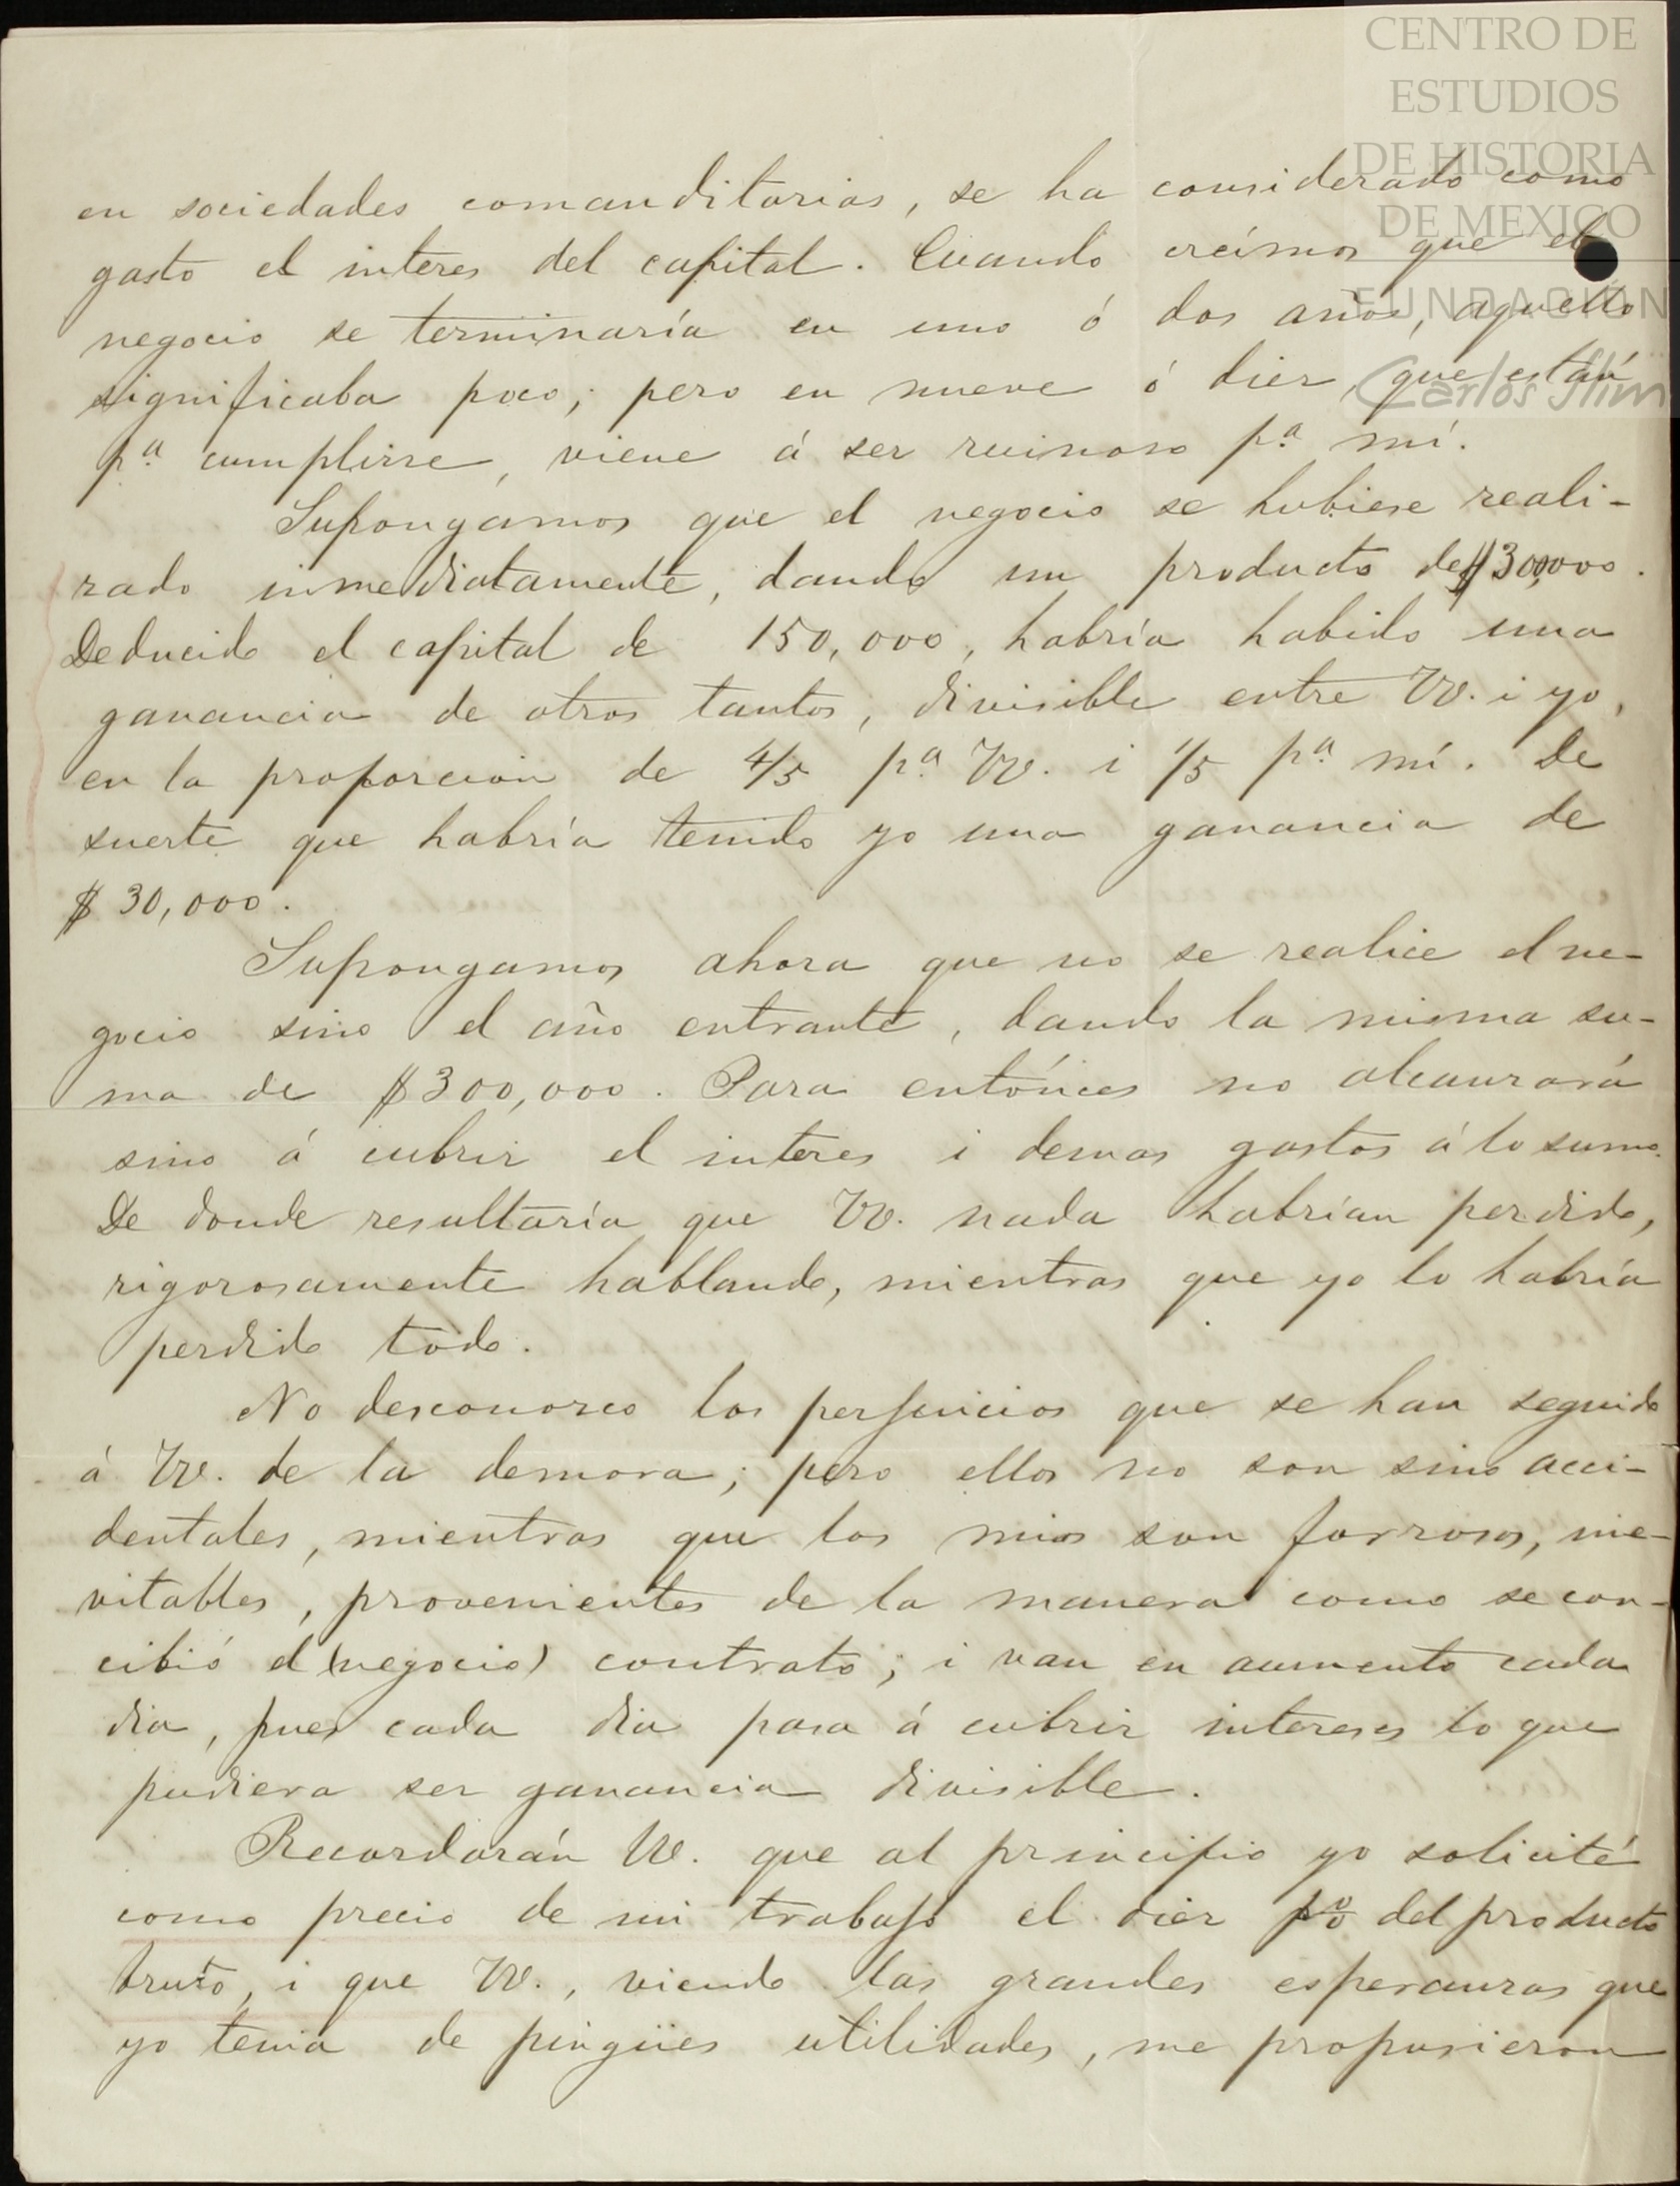 CENTRO DE
ESTUDIOS
DE HISTORIA
DE MEXICO
FUNDACIÓN
Carlos Slim
en sociedades comanditarias, se ha considerado como
gasto el interes del capital. Cuando creímos que el
negocio se terminaría en uno ó dos años, aquello
significaba poco; pero en nueve ó diez, que están
pª cumplirse, viene á ser ruinoso pª mí.
Supongamos que el negocio se hubiese reali-
zado inmediatamente, dando un producto de $300,000.
Deducido el capital de 150,000, habría habido una
ganancia de otros tantos, divisible entre VV. i yo,
en la proporcion de 4/5 pª VV. i 1/5 pª mí. De
suerte que habría tenido yo una ganancia de
$ 30,000.
Supongamos ahora que no se realice el ne-
gocio sino el año entrante, dando la misma su-
ma de $300,000. Para entónces no alcanzará
sino á cubrir el interes i demas gastos á lo sumo.
De donde resultaría que VV. nada habrían perdido,
rigorosamente hablando, mientras que yo lo habría
perdido todo.
No desconozco los perjuicios que se han seguido
á VV. de la demora; pero ellos no son sino acci-
dentales, mientras que los mios son forzosos, ine-
vitables, provenientes de la manera como se con-
cibió el (negocio) contrato; i van en aumento cada
dia, pues cada dia pasa á cubrir intereses lo que
pudiera ser ganancia divisible.
Recordarán VV. que al principio yo solicité
como precio de mi trabajo el diez p% del producto
bruto, i que VV., viendo las grandes esperanzas que
yo tenia de pingües utilidades, me propusieron